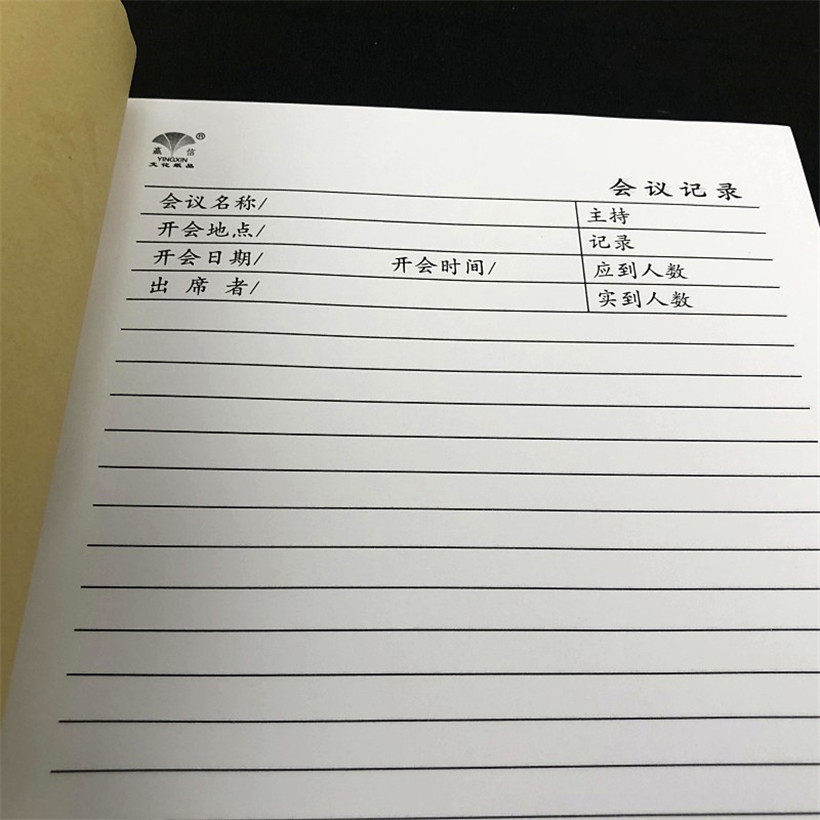 嬴信®
YINGXIN
文化纸品
会议记录
会议名称/ 主持
开会地点/ 记录
开会日期/ 开会时间/ 应到人数
出席者/ 实到人数